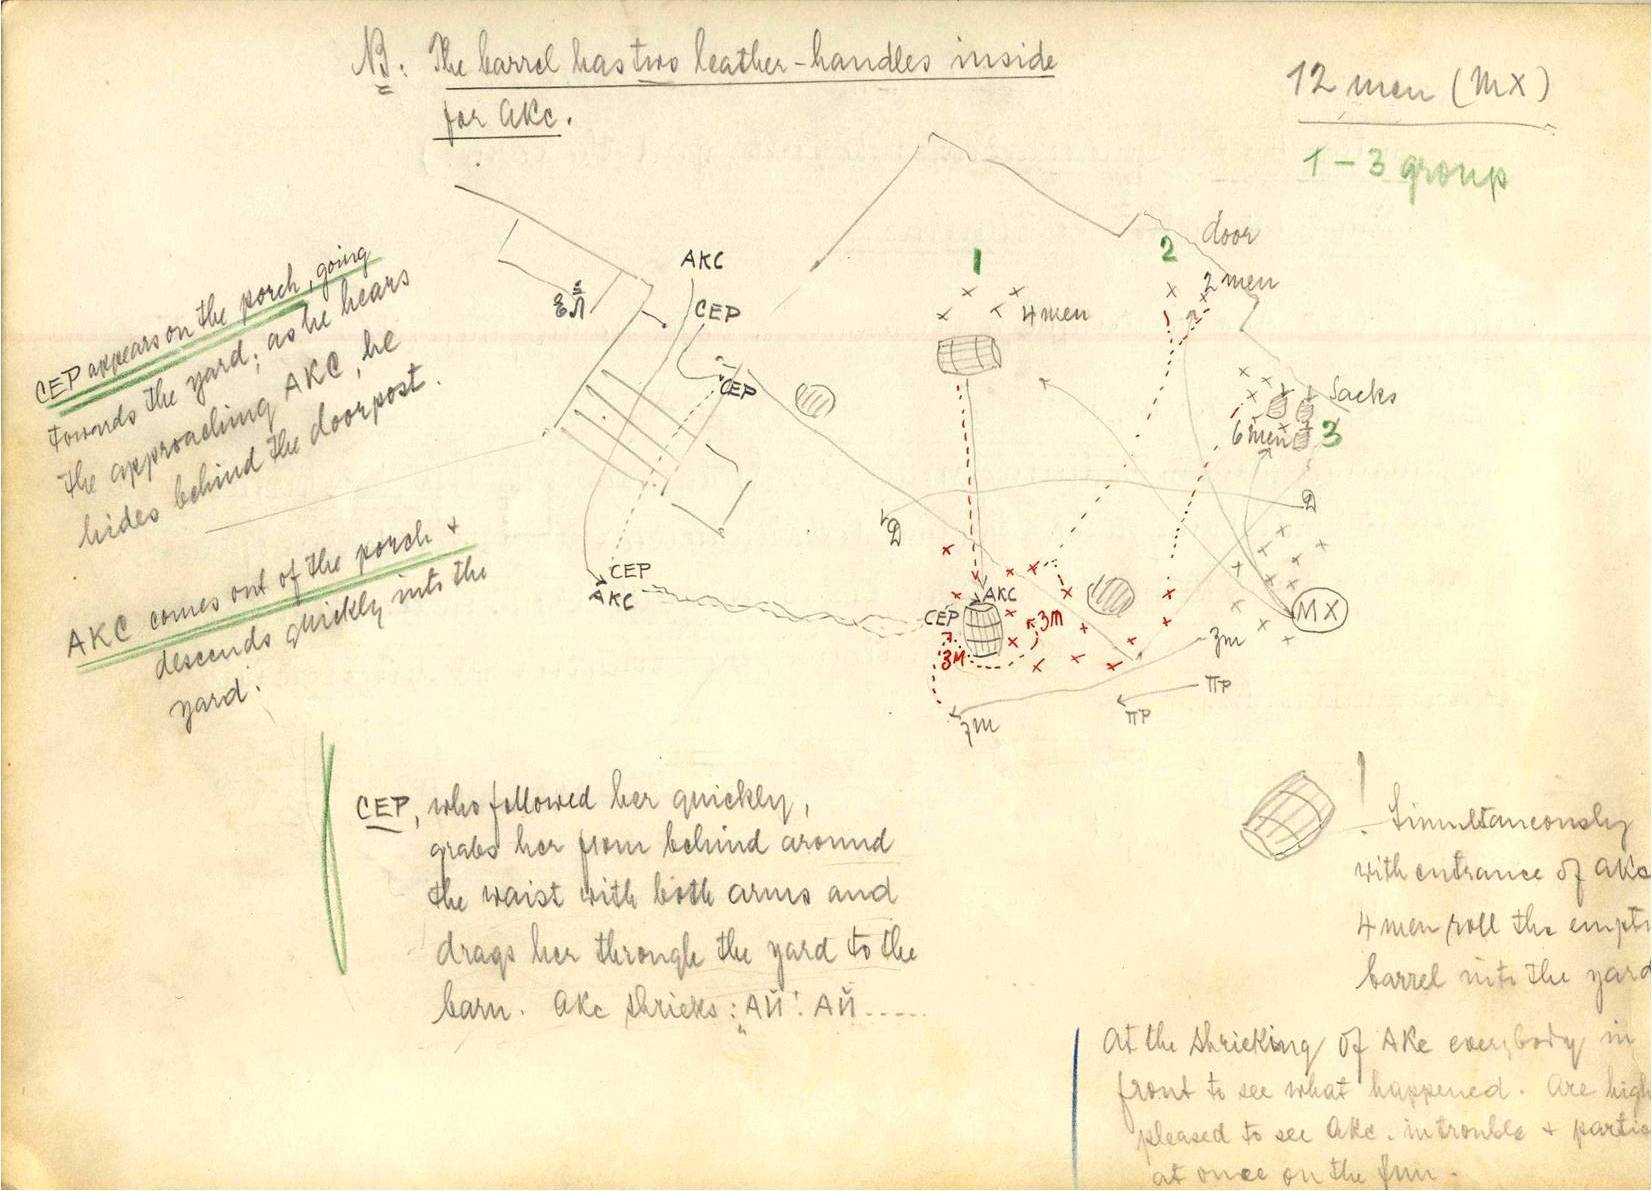 NB: The barrel has two leather-handles inside
for AKC.
12 men (MX)
1 – 3 group
door
2
2 men
1
4 men
AKC
CEP
CEP
Sacks
6 men
3
Д
Д
CEP appears on the porch, going
towards the yard; as he hears
the approaching AKC, he
hides behind the doorpost.
CEP
AKC
AKC
CEP
MX
ЗМ
ЗМ
зм
ПР
ПР
зм
AKC comes out of the porch +
descends quickly into the
yard.
CEP, who followed her quickly,
grabs her from behind around
the waist with both arms and
drags her through the yard to the
barn. AKC shrieks: „АЙ! АЙ.....
! Simultaneously
with entrance of AKC
4 men roll the empty
barrel into the yard
At the shrieking of AKC everybody in
front to see what happened. Are high
pleased to see AKC. in trouble + partic
at once on the fun.